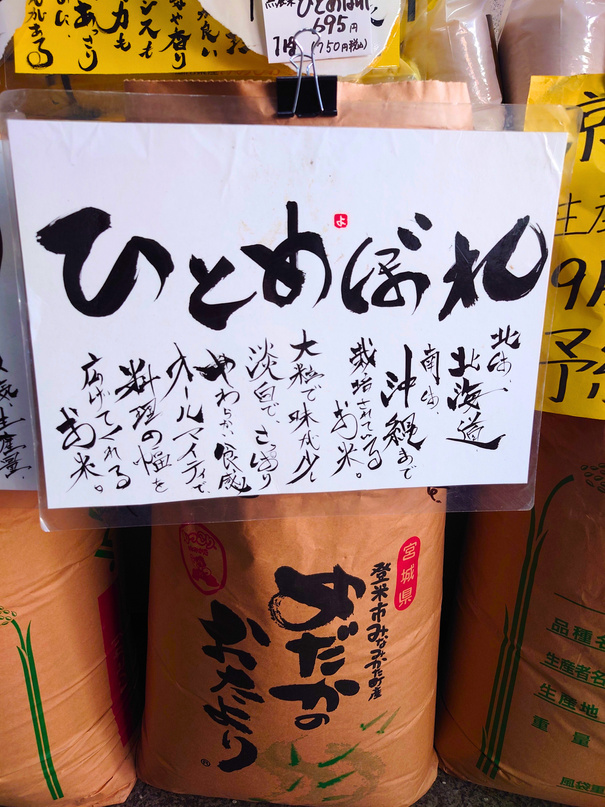 ひとめぼれ
695円
1kg (750円税込)
ひとめぼれ
よ
北は、
北海道
南は、
沖縄まで
栽培されている
お米。
大粒で味が少し
淡白で、さっぱり
やわらかい食感
オールマイティで、
料理の幅を
広げてくれる
お米。
宮城県
登米市みなみかた町産
めだかの
おたより
品種名
生産者名
生産地
重量
風袋重